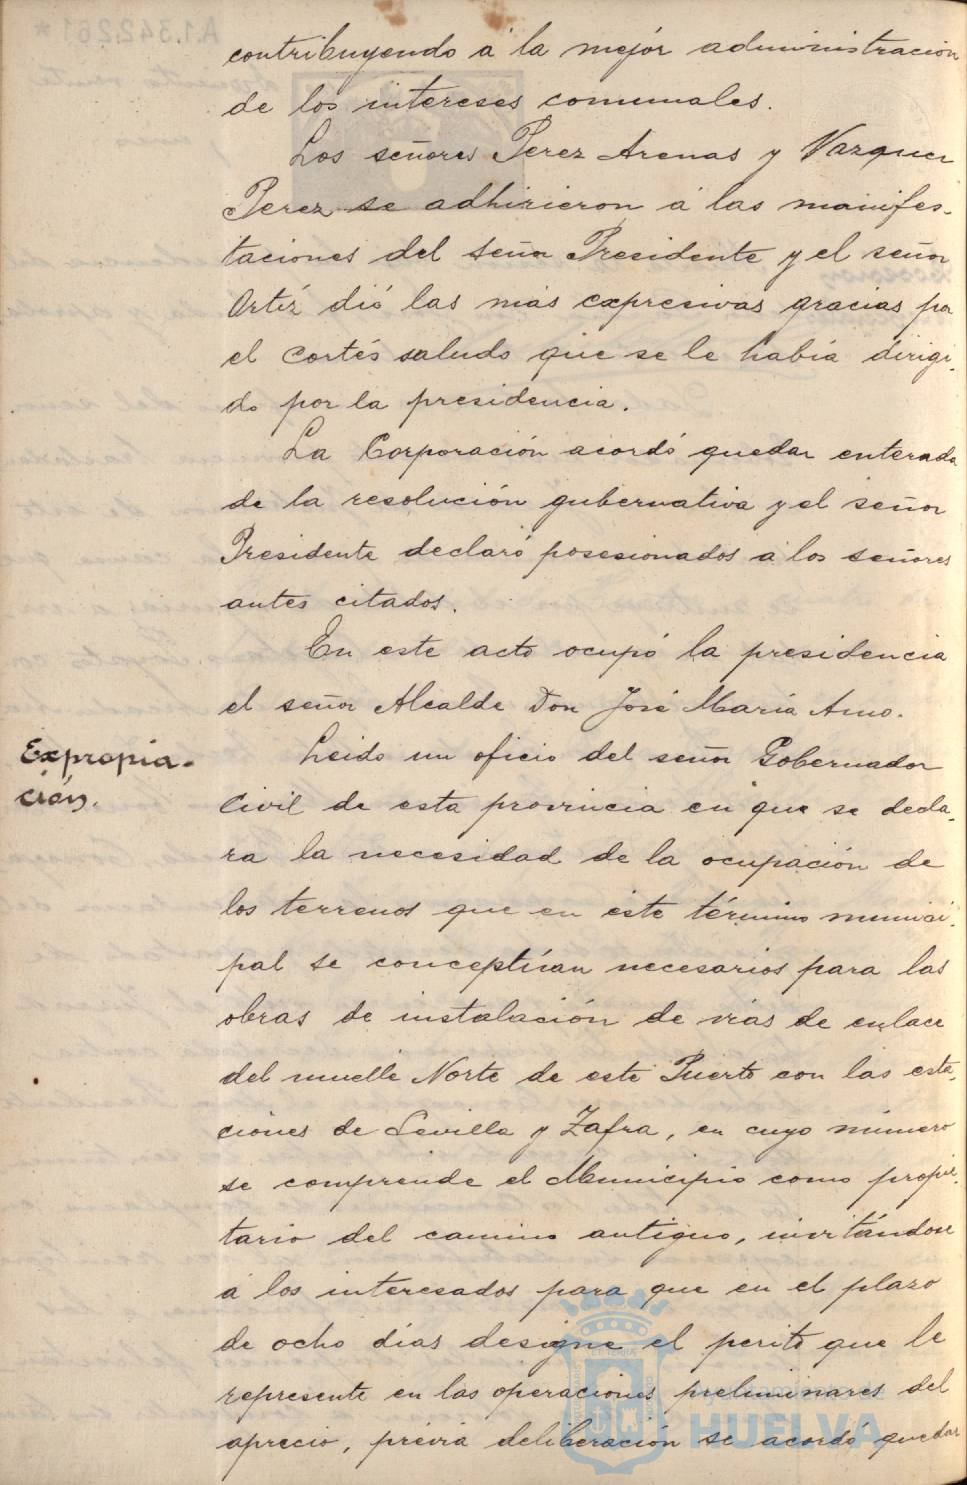 contribuyendo á la mejór administración
de los intereses comunales.
Los señores Perez Arenas y Vazquez
Perez se adhirieron á las manifes-
taciones del señor Presidente y el señor
Ortíz dió las más expresivas gracias por
el cortés saludo que se le había dirigi-
do por la presidencia.
La Corporación acordó quedar enterada
de la resolución gubernativa y el señor
Presidente declaró posesionados á los señores
antes citados.
En este acto ocupó la presidencia
el señor Alcalde Don José María Amo.
Expropia-
ción.
Leido un oficio del señor Gobernador
Civil de esta provincia en que se decla-
ra la necesidad de la ocupación de
los terrenos que en este término munici-
pal se conceptúan necesarios para las
obras de instalación de vías de enlace
del muelle Norte de este Puerto con las esta-
ciones de Sevilla y Zafra, en cuyo número
se comprende el Municipio como propie-
tario del camino antiguo, invitándose
á los interesados para que en el plazo
de ocho días designe el perito que le
represente en las operaciones preliminares del
aprecio, previa deliberación se acordó quedar
Ayuntamiento de
HUELVA